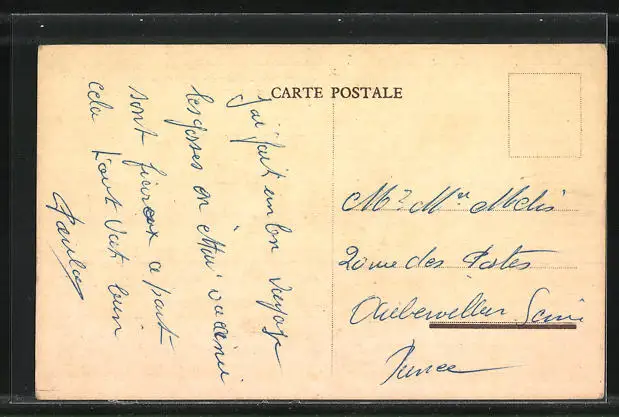 CARTE POSTALE
J'ai fait un bon voyage
les gosses on
sont a part
cela tout vat bien
Paula
Mr Mme Melis
20 rue des Postes
Aubervilliers Seine
France